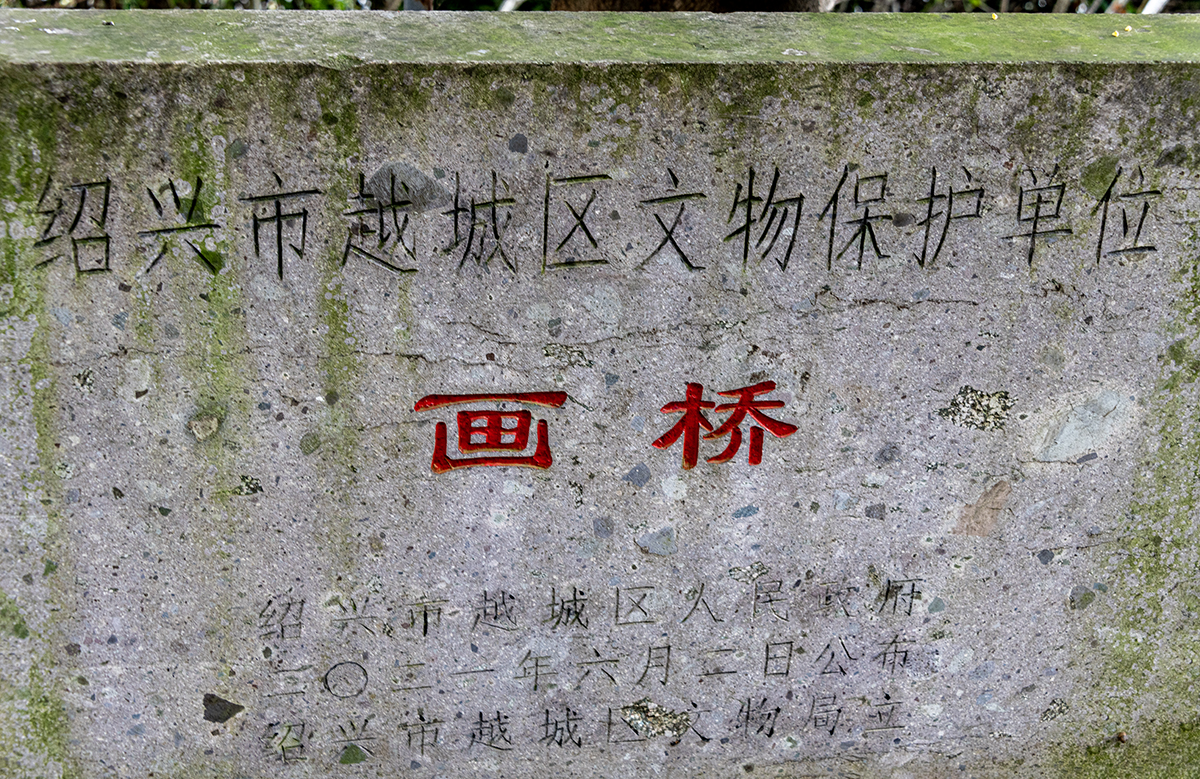 绍兴市越城区文物保护单位
画桥
绍兴市越城区人民政府
二〇二一年六月二日公布
绍兴市越城区文物局立